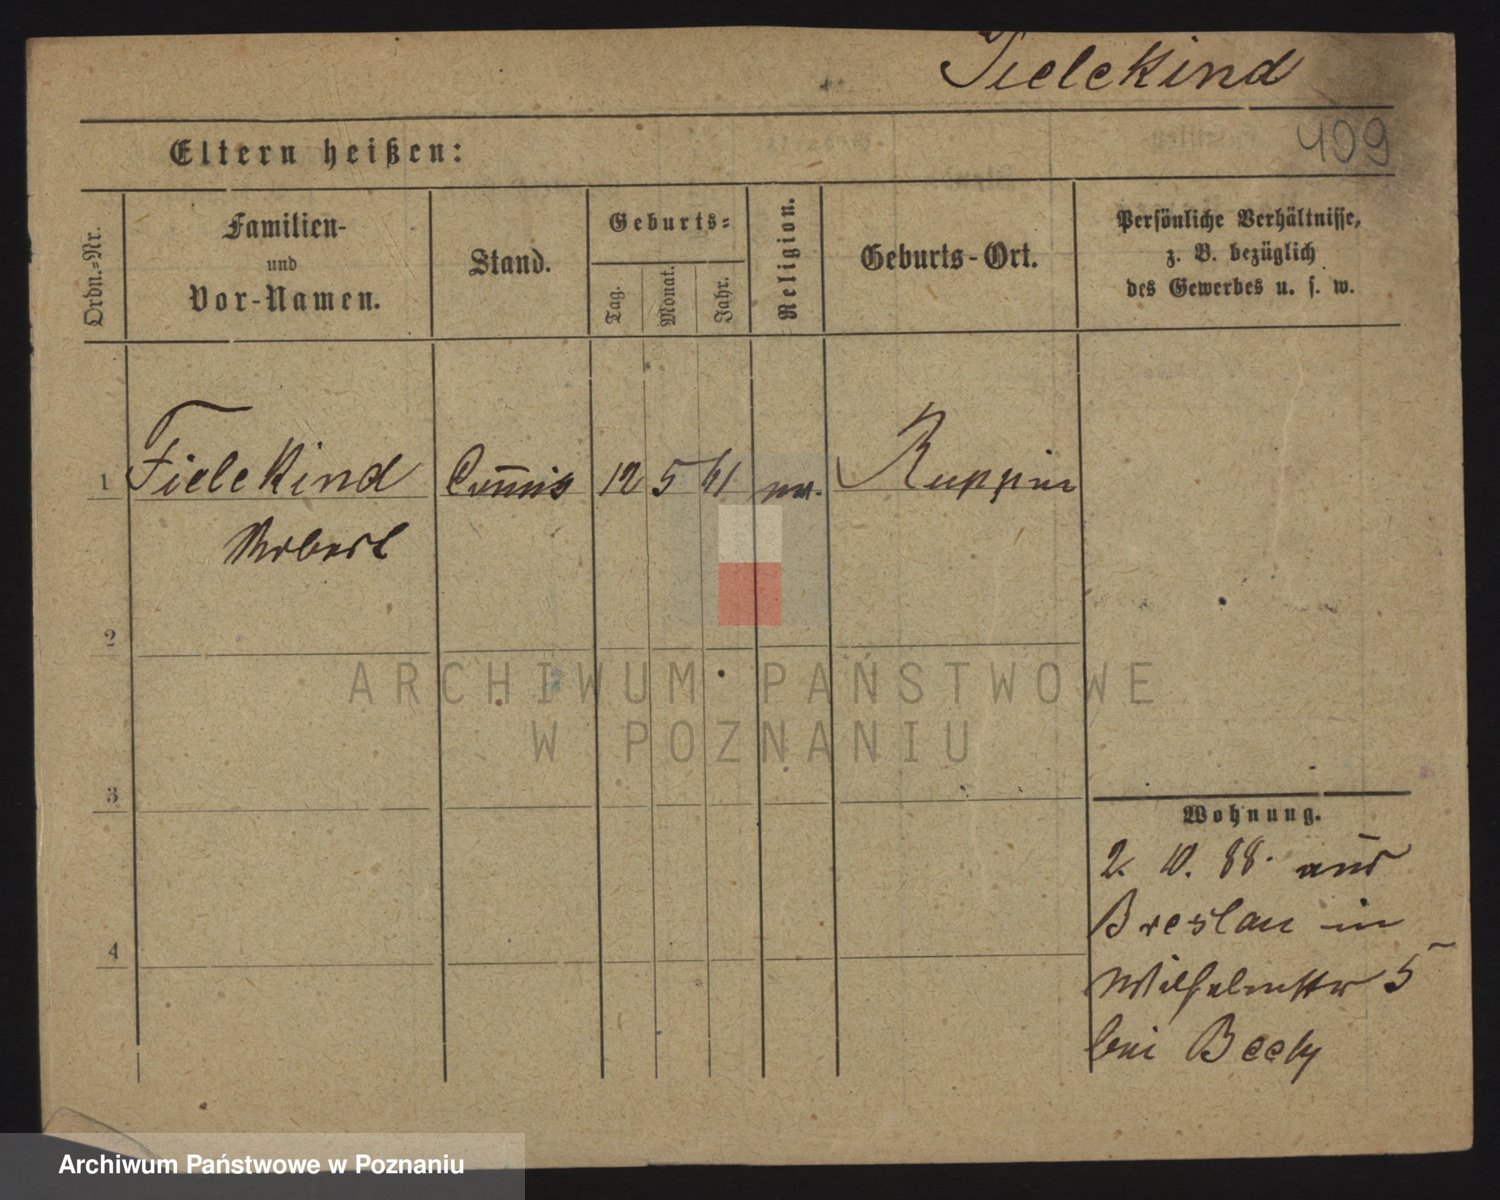 Fielekind
409
Eltern heißen:
Ordn.-Nr.
Familien-
und
Vor-Namen.
Stand.
Geburts-
Tag.
Monat.
Jahr.
Religion.
Geburts-Ort.
Persönliche Verhältnisse,
z. B. bezüglich
des Gewerbes u. s. w.
1 Fielekind Commis 12 5 61 Ruppin
Robert
2
3
4
Wohnung.
2. 10. 88. aus
Breslau in
Wilhelmstr 5
bei Beely
ARCHIWUM PAŃSTWOWE
W POZNANIU
Archiwum Państwowe w Poznaniu